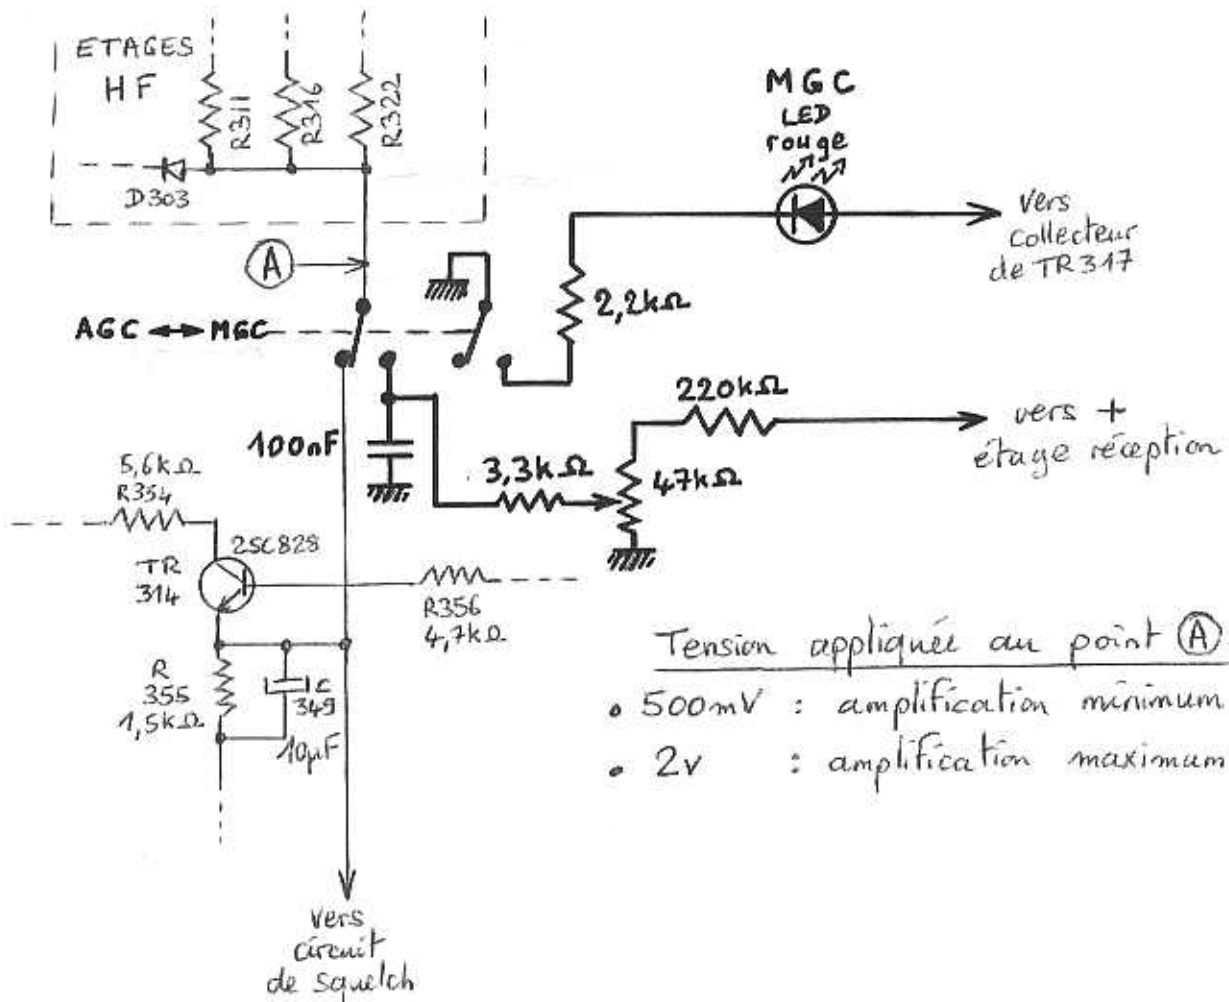 ETAGES
HF
R311
R316
R322
D303
MGC
LED
rouge
vers
collecteur
de TR317
A
2,2kΩ
AGC ↔ MGC
220kΩ
vers +
étage réception
100nF
3,3kΩ
47kΩ
5,6kΩ
R354
2SC828
TR
314
R356
4,7kΩ
R
355
1,5kΩ
C
349
10µF
Tension appliquée au point A
• 500mV : amplification minimum
• 2v : amplification maximum
vers
circuit
de squelch